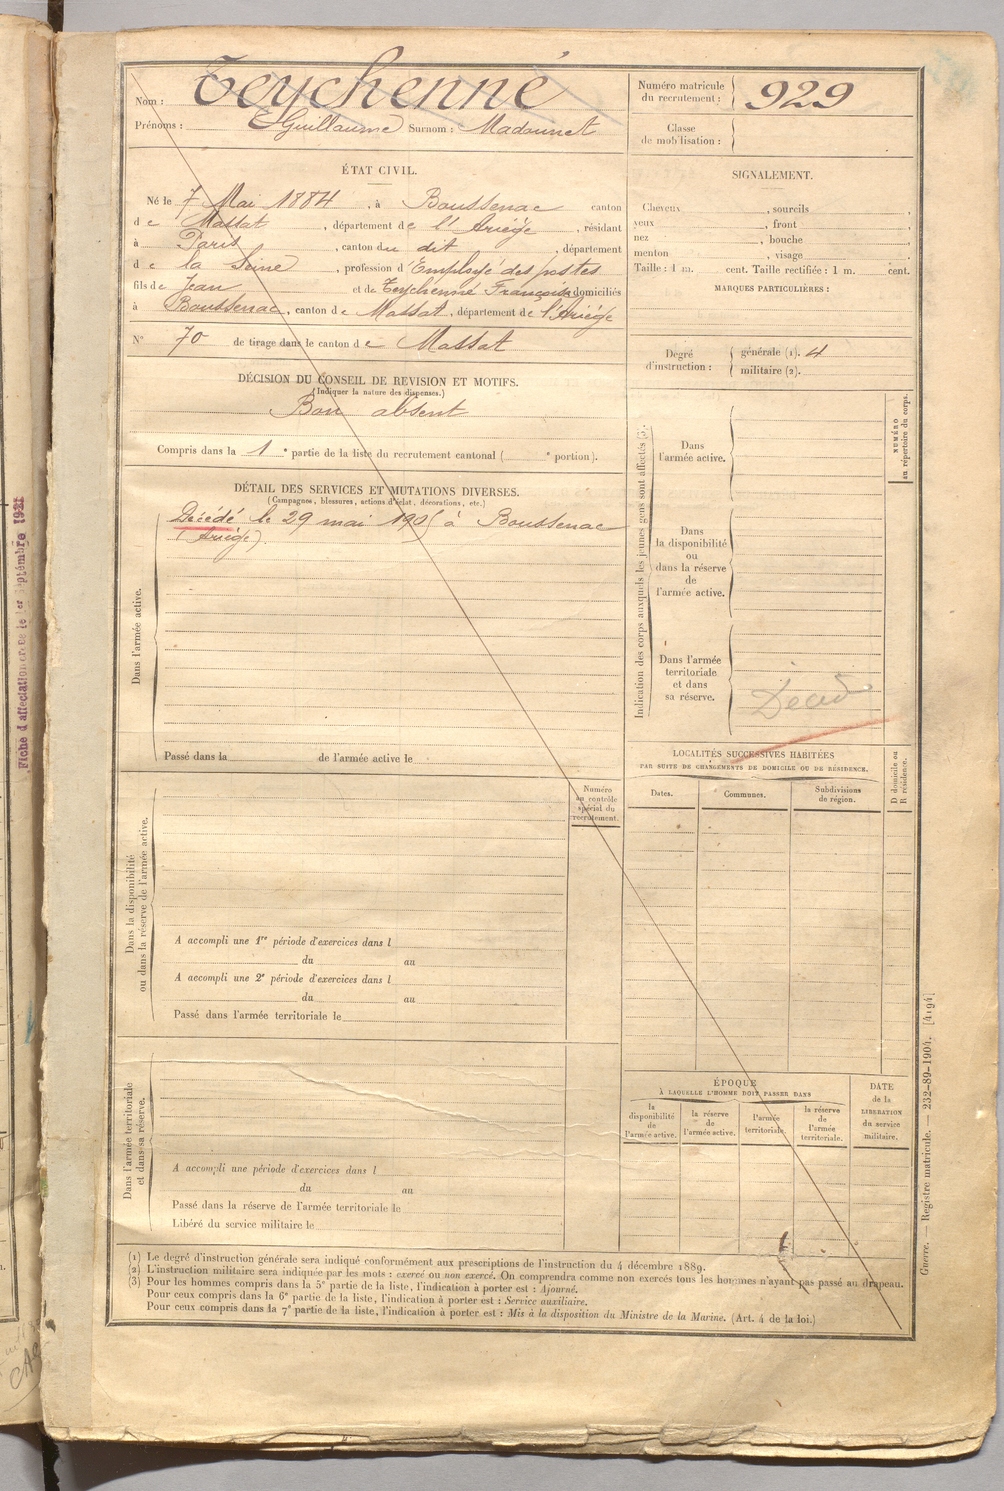 Nom : Teychenné
Prénoms : Guillaume Surnom : Madounet
Numéro matricule du recrutement : 929
Classe de mobilisation :
ÉTAT CIVIL.
Né le 7 Mai 1884, à Boussenac canton
de Massat, département de l'Ariège, résidant
à Paris, canton du dit, département
de la Seine, profession d'Employé des postes
fils de Jean et de Teychenné Françoise domiciliés
à Boussenac, canton de Massat, département de l'Ariège
N° 70 de tirage dans le canton de Massat
SIGNALEMENT.
Cheveux , sourcils ,
yeux , front ,
nez , bouche ,
menton , visage ,
Taille : 1 m. cent. Taille rectifiée : 1 m. cent.
MARQUES PARTICULIÈRES :
Degré d'instruction : générale (1). 4
militaire (2).
DÉCISION DU CONSEIL DE REVISION ET MOTIFS.
(Indiquer la nature des dispenses.)
Bon absent
Compris dans la 1e partie de la liste du recrutement cantonal ( e portion).
DÉTAIL DES SERVICES ET MUTATIONS DIVERSES.
(Campagnes, blessures, actions d'éclat, décorations, etc.)
Dans l'armée active.
Décédé le 29 mai 1905 à Boussenac
(Ariège).
Passé dans la de l'armée active le
Indication des corps auxquels les jeunes gens sont affectés (3).
NUMÉRO au répertoire du corps.
Dans l'armée active.
Dans la disponibilité ou dans la réserve de l'armée active.
Dans l'armée territoriale et dans sa réserve.
Décédé
LOCALITÉS SUCCESSIVES HABITÉES
PAR SUITE DE CHANGEMENTS DE DOMICILE OU DE RÉSIDENCE.
D domicile ou R résidence.
Dates. Communes. Subdivisions de région.
Dans la disponibilité ou dans la réserve de l'armée active.
Numéro au contrôle spécial du recrutement.
A accompli une 1re période d'exercices dans l
du au
A accompli une 2e période d'exercices dans l
du au
Passé dans l'armée territoriale le
Dans l'armée territoriale et dans sa réserve.
A accompli une période d'exercices dans l
du au
Passé dans la réserve de l'armée territoriale le
Libéré du service militaire le
ÉPOQUE
À LAQUELLE L'HOMME DOIT PASSER DANS
la disponibilité de l'armée active.
la réserve de l'armée active.
l'armée territoriale.
la réserve de l'armée territoriale.
DATE de la LIBÉRATION du service militaire.
(1) Le degré d'instruction générale sera indiqué conformément aux prescriptions de l'instruction du 4 décembre 1889.
(2) L'instruction militaire sera indiquée par les mots : exercé ou non exercé. On comprendra comme non exercés tous les hommes n'ayant pas passé au drapeau.
(3) Pour les hommes compris dans la 5e partie de la liste, l'indication à porter est : Ajourné.
Pour ceux compris dans la 6e partie de la liste, l'indication à porter est : Service auxiliaire.
Pour ceux compris dans la 7e partie de la liste, l'indication à porter est : Mis à la disposition du Ministre de la Marine. (Art. 4 de la loi.)
Guerre. — Registre matricule. — 232-89-1904. [4194]
Fiche d'affectation créée le 1er Septembre 1921